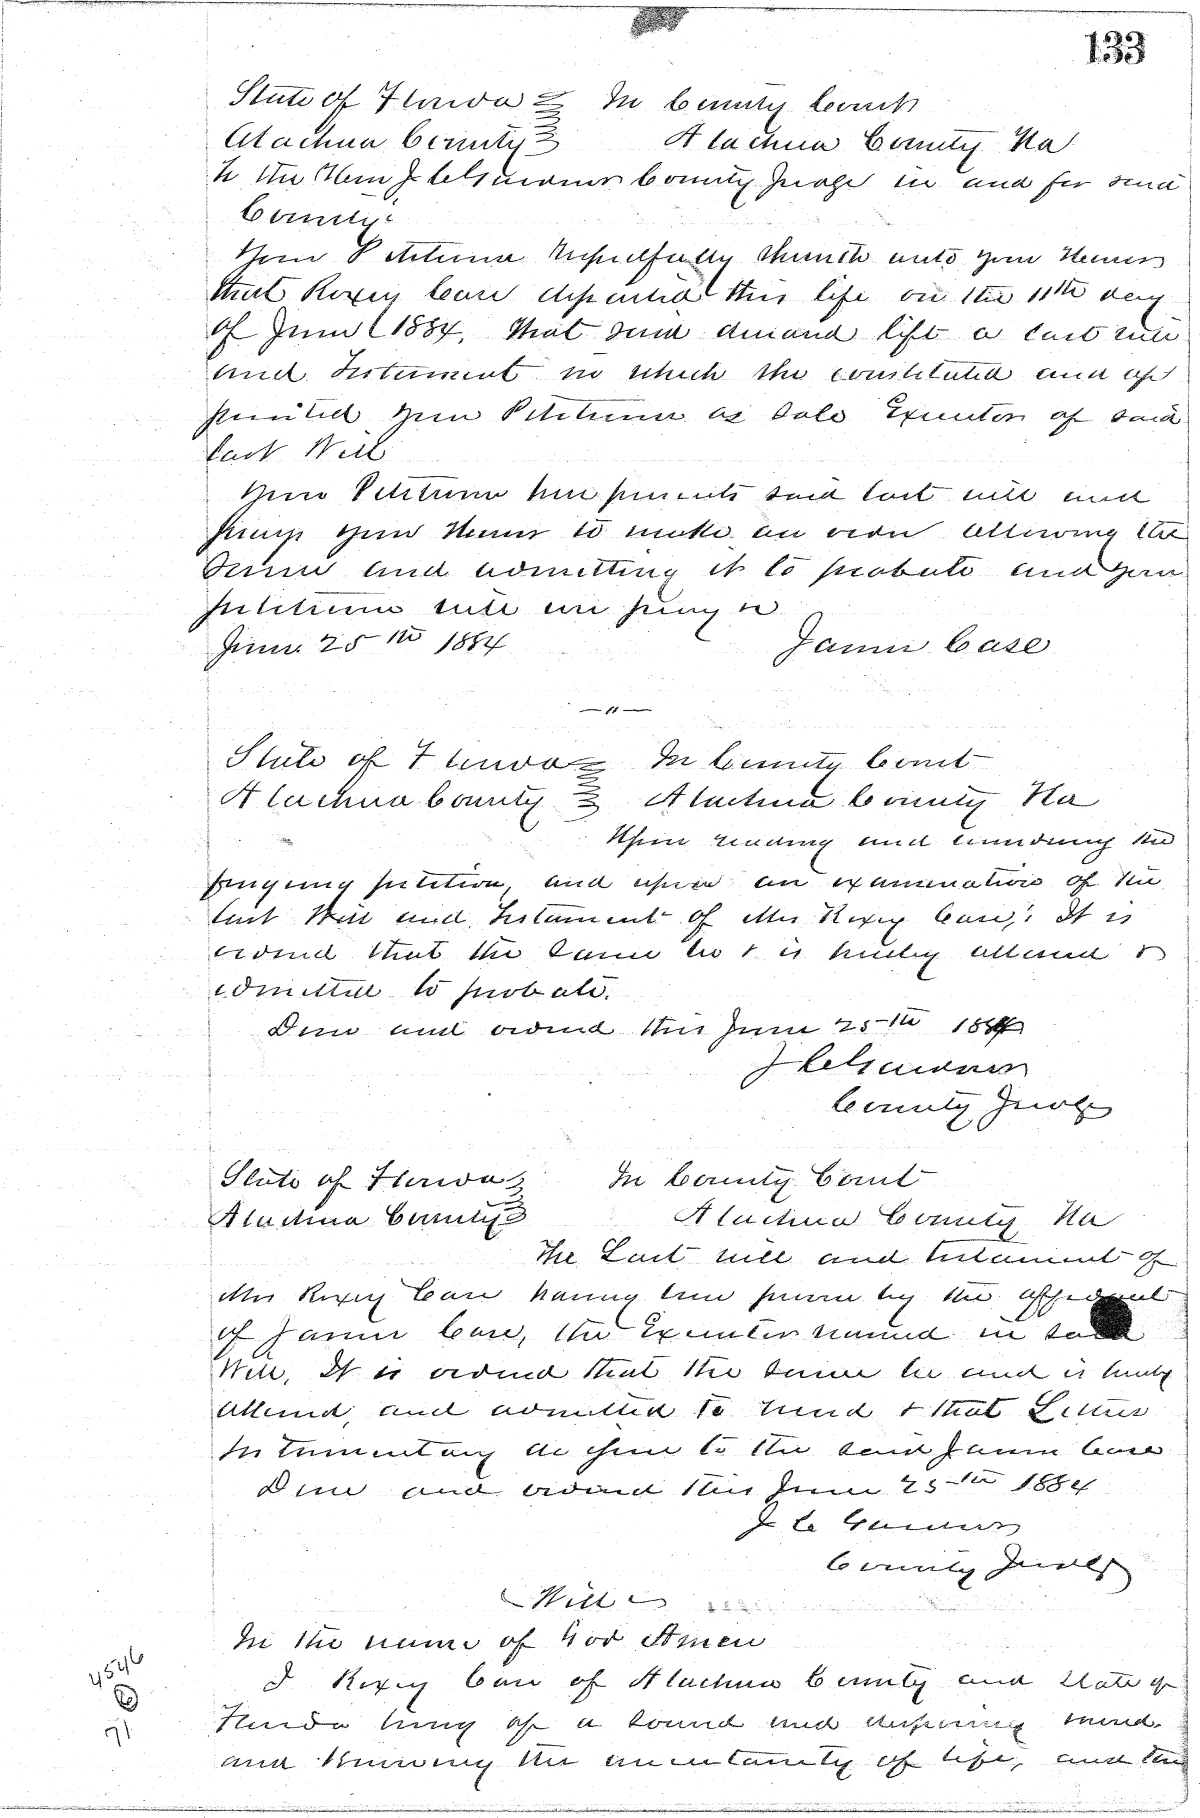 133
State of Florida In County Court
Alachua County Alachua County Fla
To the Hon J C Gardner County Judge in and for said
County:
Your Petitioner respectfully showeth unto your Honor
that Roxey Case departed this life on the 11th day
of June 1884, that said deceased left a last will
and Testament in which she constituted and ap
pointed your Petitioner as sole Executor of said
last Will
Your Petitioner here presents said last will and
prays your Honor to make an order allowing the
same and admitting it to probate and your
petitioner will ever pray &c
June 25th 1884 James Case
— " —
State of Florida In County Court
Alachua County Alachua County Fla
Upon reading and considering the
foregoing petition, and upon an examination of the
last Will and Testament of Mrs Roxey Case; It is
ordered that the same be & is hereby allowed &
admitted to probate.
Done and ordered this June 25th 1884
J C Gardner
County Judge
State of Florida In County Court
Alachua County Alachua County Fla
The Last will and testament of
Mrs Roxey Case having been proven by the affidavit
of James Case, the Executor named in said
Will, It is ordered that the same be and is hereby
allowed, and admitted to record & that Letters
testamentary be given to the said James Case
Done and ordered this June 25th 1884
J C Gardner
County Judge
Will
In the name of God Amen
I Roxey Case of Alachua County and State of
Florida being of a sound and disposing mind
and knowing the uncertainty of life, and the
4546
71